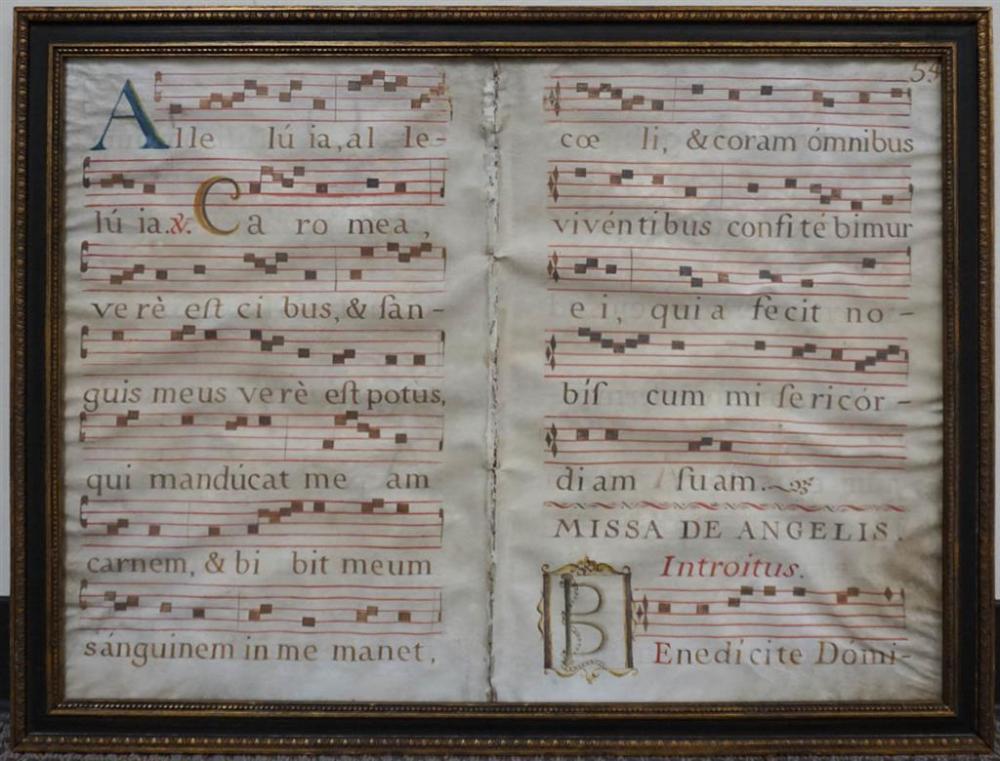 Alle lú ia, al le-
lú ia. ℣. Caro mea,
verè eſt cibus, & ſan-
guis meus verè eſt potus,
qui mandúcat meam
carnem, & bibit meum
sánguinem in me manet,
54
cœli, & coram ómnibus
vivéntibus confitébimur
ei, quia fècit no-
biſcum miſericór-
diam ſuam.
MISSA DE ANGELIS.
Introitus.
BEnedícite Dómi-